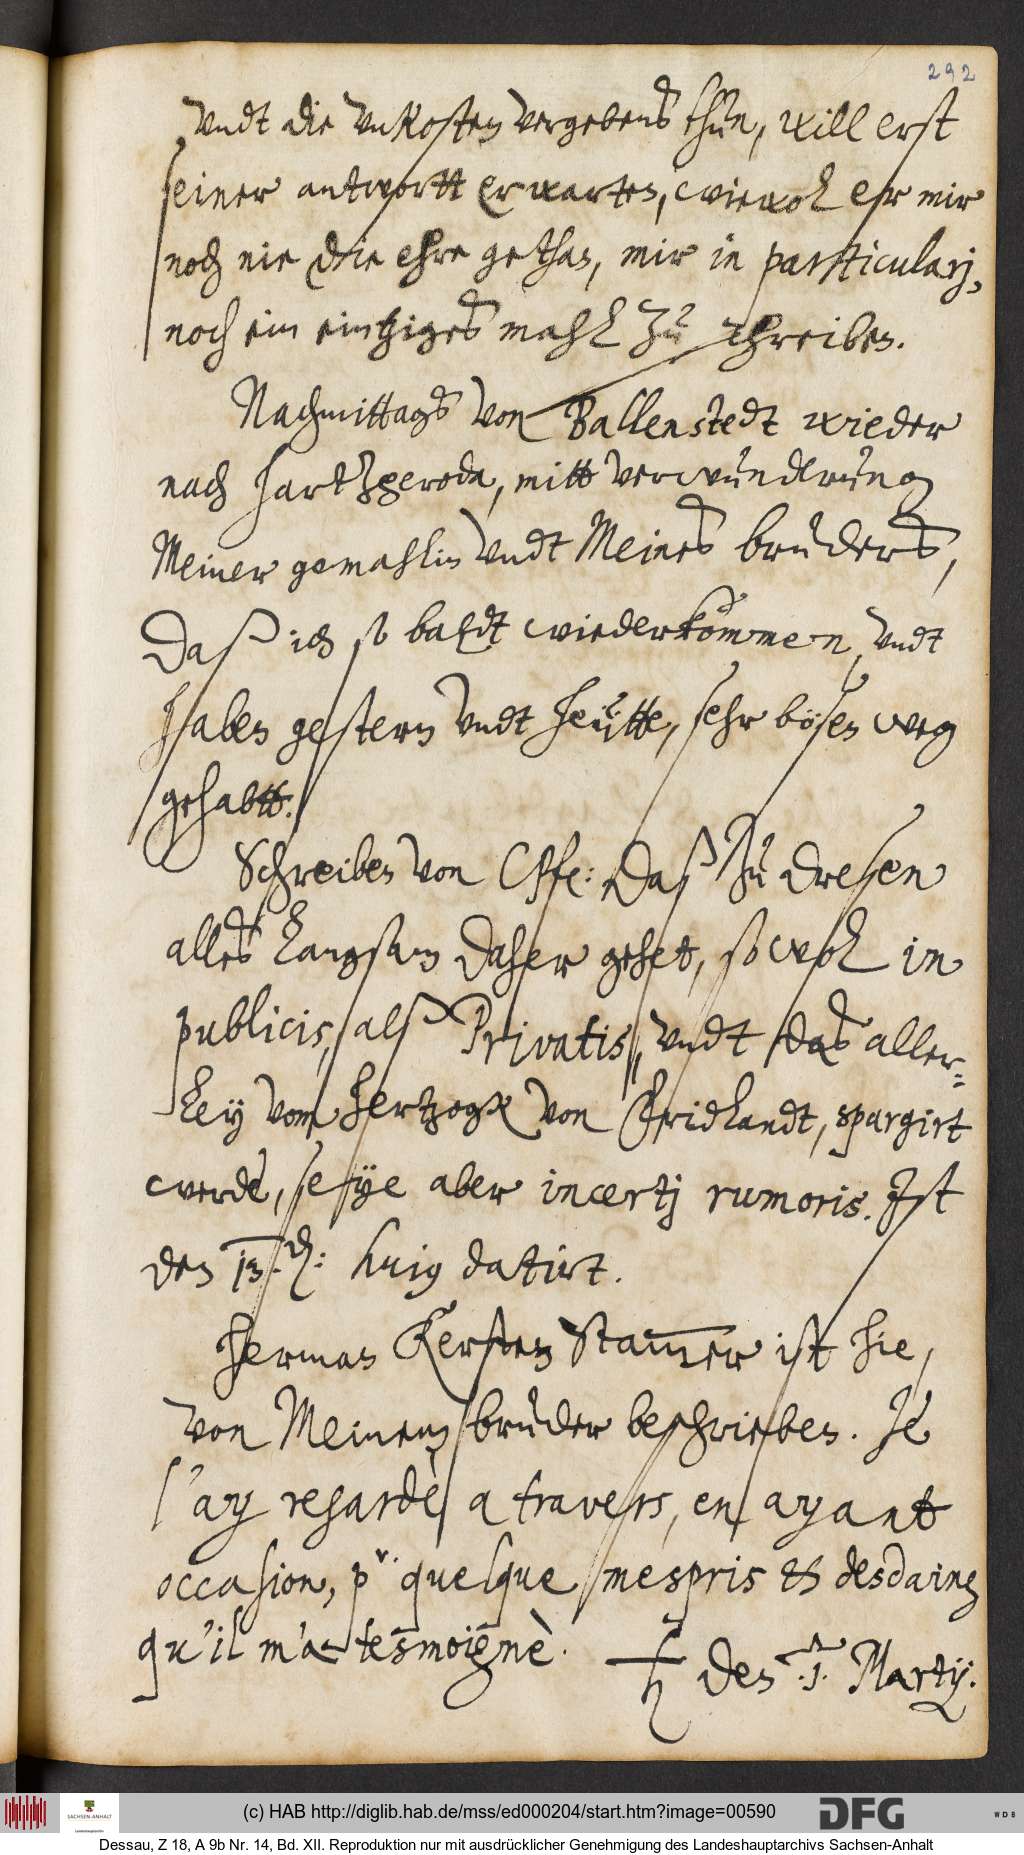 292
vndt die vnkosten vergebens thun, will erst
seiner antwortt erwarten, wiewol er mir
noch nie die ehre gethan, mir in particularj,
noch ein eintziges mahl zu schreiben.
Nachmittags von Ballenstedt wieder
nach Hartzgeroda, mitt verwunderung
Meiner gemahlin vndt Meines bruders,
Daß ich so baldt wiederkommen, vndt
haben gestern vndt heütte, sehr bösen weg
gehabtt.
Schreiben von Daß zu Dresen
alles langsam daher gehet, so wol in
publicis, alß Privatis, vndt das aller=
ley vom Hertzogk von Fridlandt, spargirt
werde, seye aber incertj rumoris. Ist
den 13. d: huig datirt.
Herman Kersten Stammer ist hie,
von Meinem bruder beschrieben. Je
l'ay regardè a travers, en ayant
occasion, pr. quelque mespris & desdaing
qu'il m'a tesmoignè.
♄ den .1. Martij.
(c) HAB http://diglib.hab.de/mss/ed000204/start.htm?image=00590
SACHSEN-ANHALT
DFG
WDB
Dessau, Z 18, A 9b Nr. 14, Bd. XII. Reproduktion nur mit ausdrücklicher Genehmigung des Landeshauptarchivs Sachsen-Anhalt